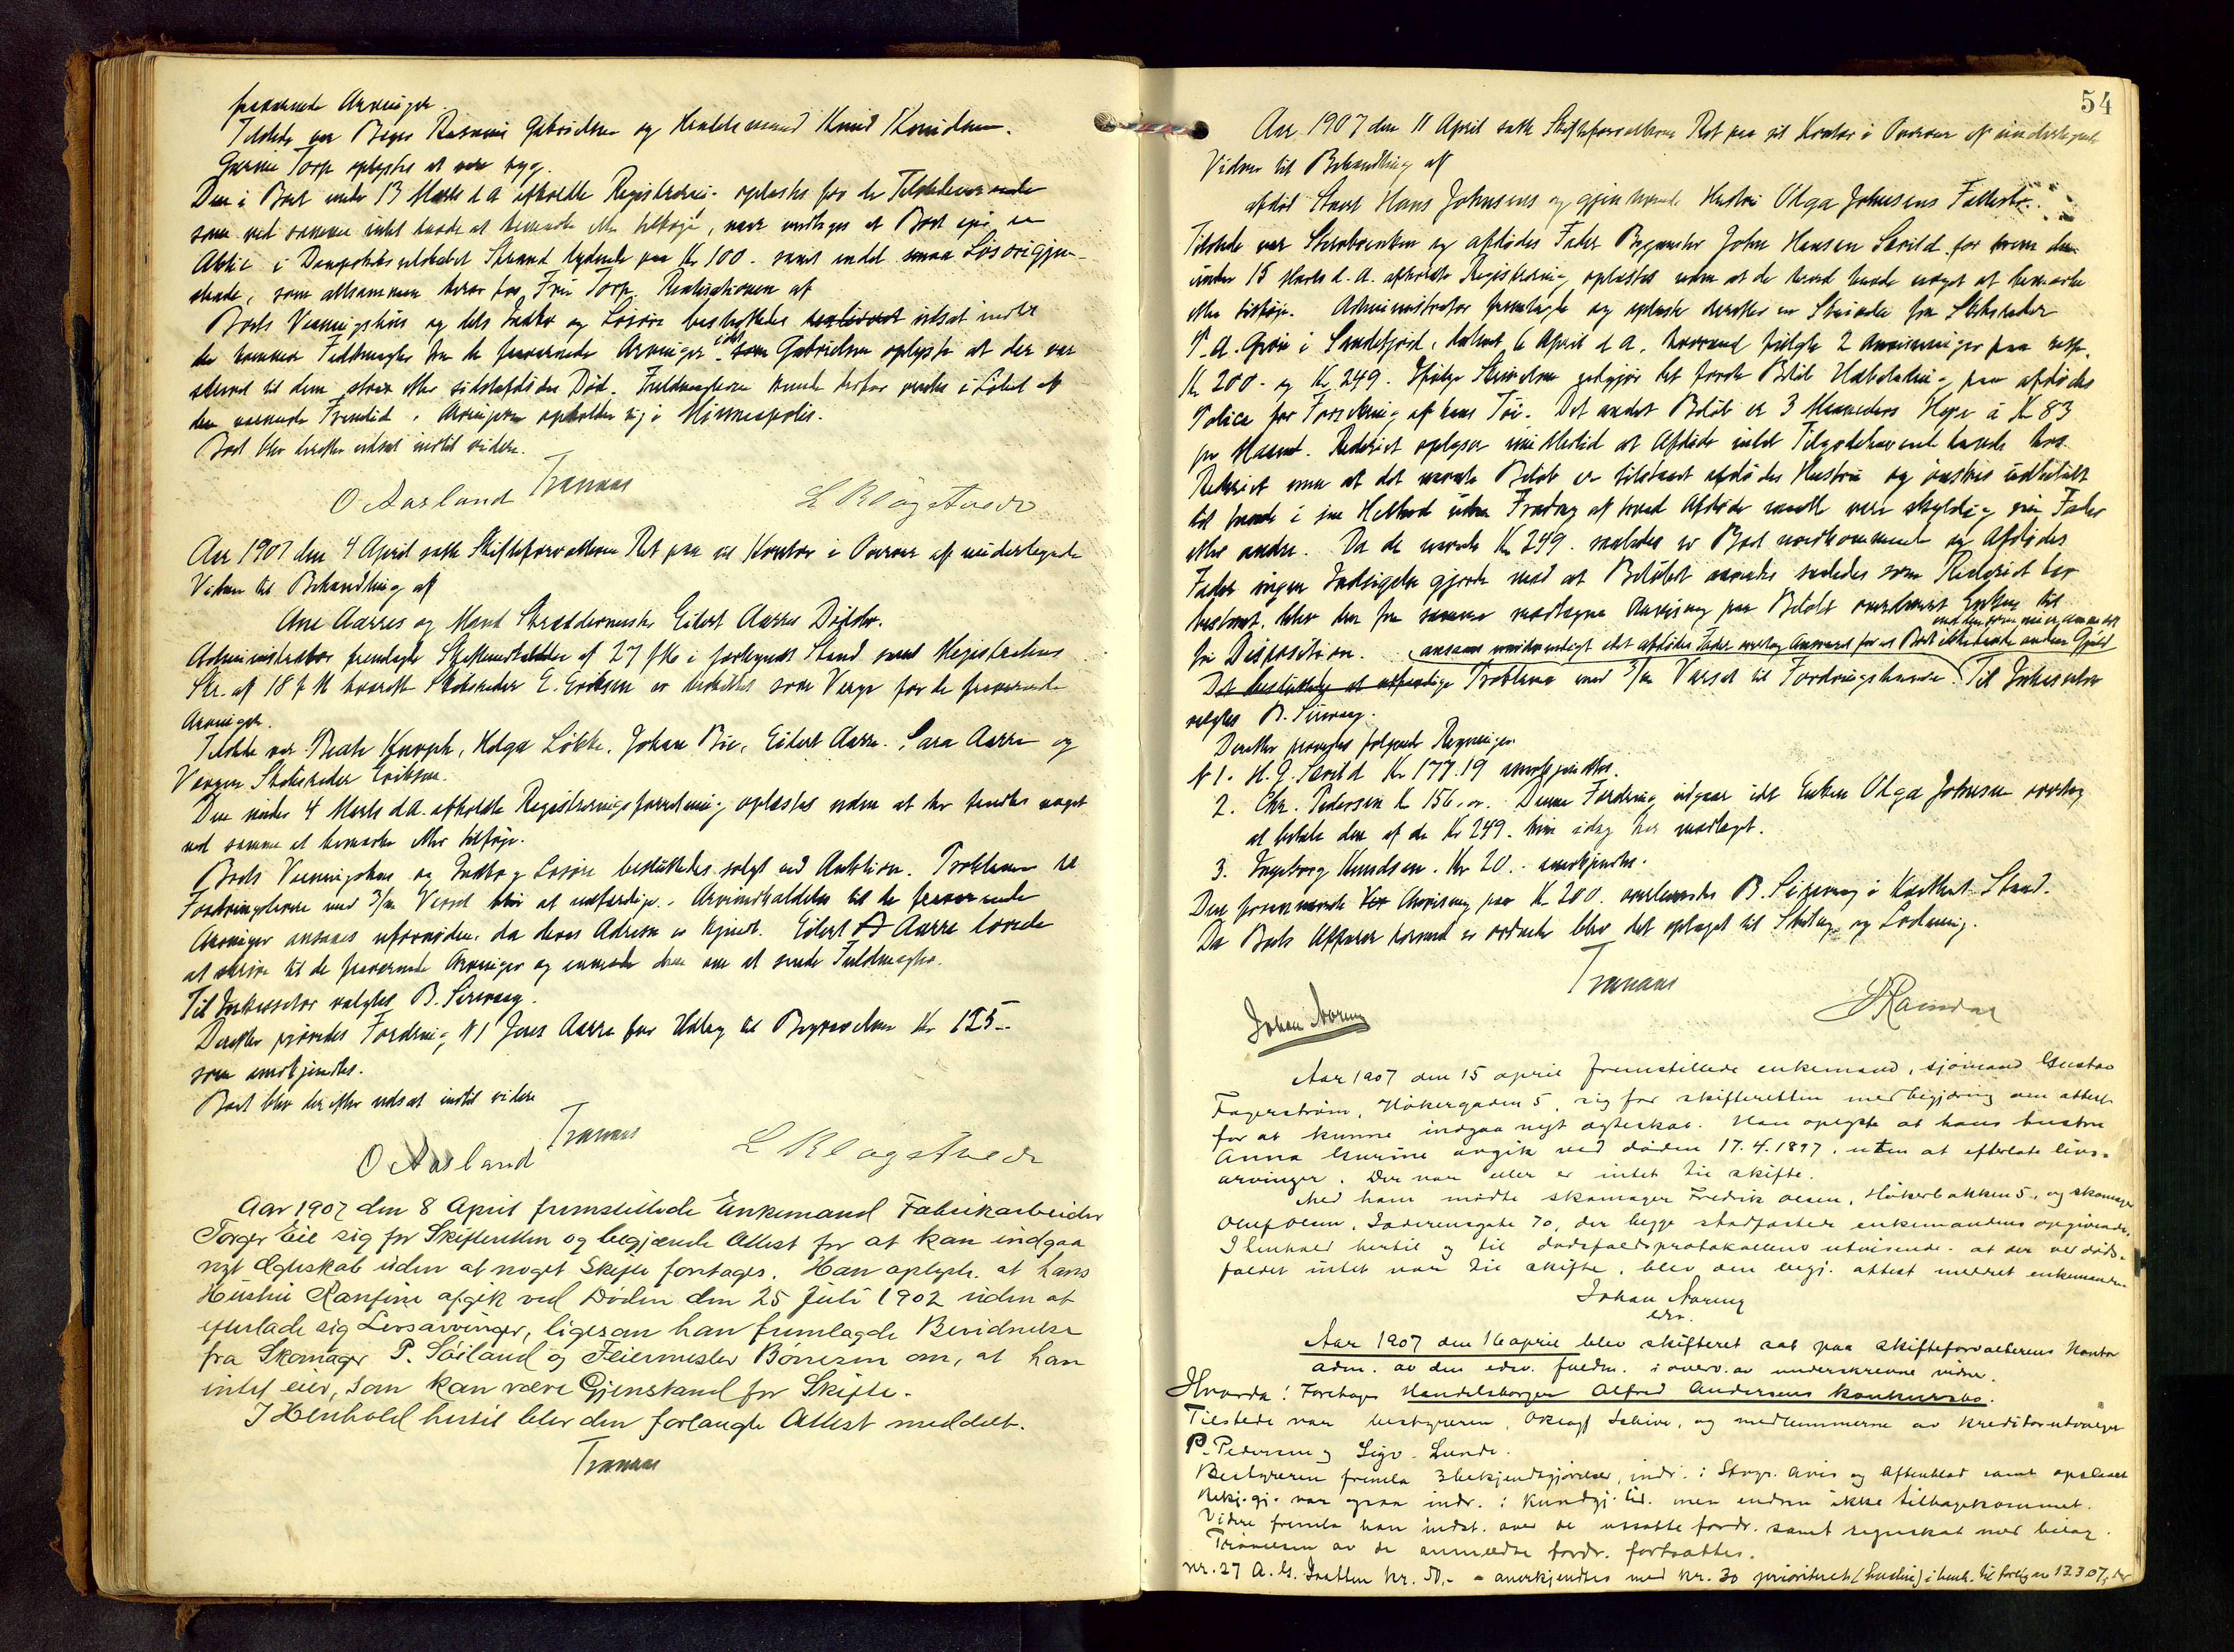 fraværende Arvinger.
Tilstede var Bager Rasmus Gabrielsen og Handelsmand Knud Knudsen.
Garver Torp oplystes at være syg.
Den i Boet under 13 Marts d A afholdte Registrering oplæstes for de Tilstedeværende
som ved samme intet havde at bemærke eller tilføie, at Boet eier en
Aktie i Dampskibsselskabet Strand lydende paa Kr 100. samt endel smaa Løsøregjen-
stande, som allsammen beror hos Fru Torp. Realisationen af
Boets Vaaningshus og dets Indbo og Løsøre besluttedes udsat indtil
der kommer Fuldmagter fra de fraværende Arvinger, idet Gabrielsen oplyste at der var
skrevet til dem strax efter sidstafdødes Død. Fuldmagterne kunde derfor ventes i Løbet af
den nærmeste Fremtid. Arvingerne opholder sig i Minneapolis.
Boet blev derefter udsat indtil videre.
O Aasland Tranaas L Kløgetvedt
Aar 1907 den 4 April satte Skifteforvalteren Ret paa sit Kontor i Overvær af undertegnede
Vidner til Behandling af
Ane Aarres og Mand Skræddermester Eilert Aarres Dødsbo.
Administrator fremlagte af 27 f M i forkyndt Stand samt Magistratens
Skr. af 18 f M hvorefter Skibsreder E. Eriksen er beskikket som Verge for de fraværende
Arvinger.
Tilstede var Beate Knoph, Helga Løkke, Johan Bie, Eilert Aarre, Sara Aarre og
Vergen Skibsreder Eriksen.
Den under 4 Marts d.A. afholdte Registreringsforretning oplæstes uden at der fandtes noget
ved samme at bemærke eller tilføie.
Boets Vaaningshus og Indbo og Løsøre besluttedes solgt ved Auktion. Proklama til
Fordringshavere med 3/m Varsel blir at udfærdige. Arveindkaldelse til de fraværende
Arvinger ansaaes ufornøden, da deres Adresse er kjendt. Eilert Aarre lovede
at skrive til de fraværende Arvinger og anmode dem om at sende Fuldmagter.
Til Inkassator valgtes B. Sirevaag.
Derefter prøvedes Fordring N 1 Aarre for Udlæg til Begravelsen Kr 125.-
som anerkjendtes.
Boet blev derefter udsat indtil videre
O Aasland Tranaas L Kløgetvedt
Aar 1907 den 8 April fremstillede Enkemand Fabrikarbeider
Torger Eie sig for Skifteretten og begjærede Attest for at kan indgaa
nyt Ægteskab uden at noget Skifte foretages. Han oplyste at hans
Hustru afgik ved Døden den 25 Juli 1902 uden at
efterlade sig Livsarvinger, ligesom han fremlagde Bevidnelse
fra Skomager P. Søiland og Feiermester Børresen om, at han
intet eier, som kan være Gjenstand for Skifte.
I Henhold hertil blev den forlangte Attest meddelt.
Tranaas
54
Aar 1907 den 11 April satte Skifteforvalteren Ret paa sit Kontor i Overvær af undertegnede
Vidner til Behandling af
afdød Hans Johnsens og gjenlevende Hustru Olga Johnsens Fællesbo.
Tilstede var Stervboenken og afdødes Fader Bygmester John Hansen for hvem den
under 15 Marts d.A. afholdte Registrering oplæstes uden at de herved havde noget at bemærke
eller tilføie. Administrator fremlagte og oplæste derefter en Skrivelse fra Skibsreder
P.A. Grøn i Sandefjord, dateret 6 April d A, hvormed fulgte 2 Anvisninger paa resp.
Kr 200.- og Kr 249. Ifølge Skrivelsen udgjør det første Beløb Udbetaling paa afdødes
Police for Forsikring af hans Tøi. Det andet Beløb er 3 Maaneders Hyre á Kr 83
pr Maaned. Rederiet oplyser imidlertid at Afdøde intet Tilgodehavende havde hos
Rederiet men at det nævnte Beløb er tilstaaet afdødes Hustru og ønskes udbetalt
til hende i sin Helhed uden Fradrag af hvad Afdøde maatte være skyldig sin Fader
eller andre. Da de nævnte Kr 249. saaledes er Boet uvedkommende og Afdødes
Fader ingen Indsigelse gjorde mod at Beløbet anvendes saaledes som Rederiet har
bestemt, blev den fra samme modtagne Anvisning paa Beløbet overleveret Enken til
fri Disposition. ansaaes unødvendigt idet afdødes Fader overtog Ansvaret for at Boet ikke havde anden Gjæld
Det besluttedes at udfærdige Proklama med 3/m Varsel til Fordringshavere. Til Inkassator
valgtes B. Sirevaag.
Derefter prøvedes følgende Regninger
N 1. Kr 177.19 anerkjendtes.
2. Chr. Pedersen Kr 156. Denne Fordring udgaar idet Enken Olga Johnsen overtog
at betale den af de Kr 249. hun idag har modtaget.
3. Ingeborg Knudsen. Kr 20.- anerkjendtes.
Den forannævnte Anvisning paa Kr 200. overleveredes B. Sirevaag i Kvitteret Stand.
Da Boets Affærer hermed er ordnede blev det optaget til Slutning og Lodning.
Tranaas
Johan Noreng
Aar 1907 den 15 april fremstillede enkemand, sjømand Gustav
Fagerstrøm, Høkergaden 5, sig for skifteretten med begjæring om attest
for at kunne indgaa nyt ægteskab. Han oplyste at hans hustru
Anna Gurine avgik ved døden 17.4.1897, uten at efterlate livs-
arvinger. Der var eller er intet til skifte.
Med ham mødte skomager Fredrik Olsen, Høkerbakken 5, og skomager
Oluf Olsen, Jæderensgate 70, der begge stadfæstede enkemandens opgivende.
I henhold hertil og til dødsfaldsprotokollens utvisende at der ved døds-
faldet intet var til skifte, blev den begj. attest meddelt enkemanden
Johan Noreng
edsv.
Aar 1907 den 16 april blev skifteret sat paa skifteforvalterens kontor
adm. av den edsv. fuldm. i overv. av underskrevne vidner.
Hvorda! Foretages Handelsborger Alfred Andersens konkursbo.
Tilstede var bestyreren, Schive, og medlemmerne av kreditorutvalget
P. Pedersen og Sigv. Lunde.
Bestyreren fremla 3 bekjendtgjørelser, indr. i Stvgr. Avis og Aftenblad samt opslaaet
Bekj.gj. var ogsaa indr. i Kundgj.tid. men endnu ikke tilbagekommet.
Videre fremla han indst. over de utsatte fordr. samt regnskab med bilag.
Prøvelsen av de anmeldte fordr. fortsattes.
nr. 27 A. G. kr. 50,- anerkjendtes med kr. 30 prioritert (husleie) i henh. til